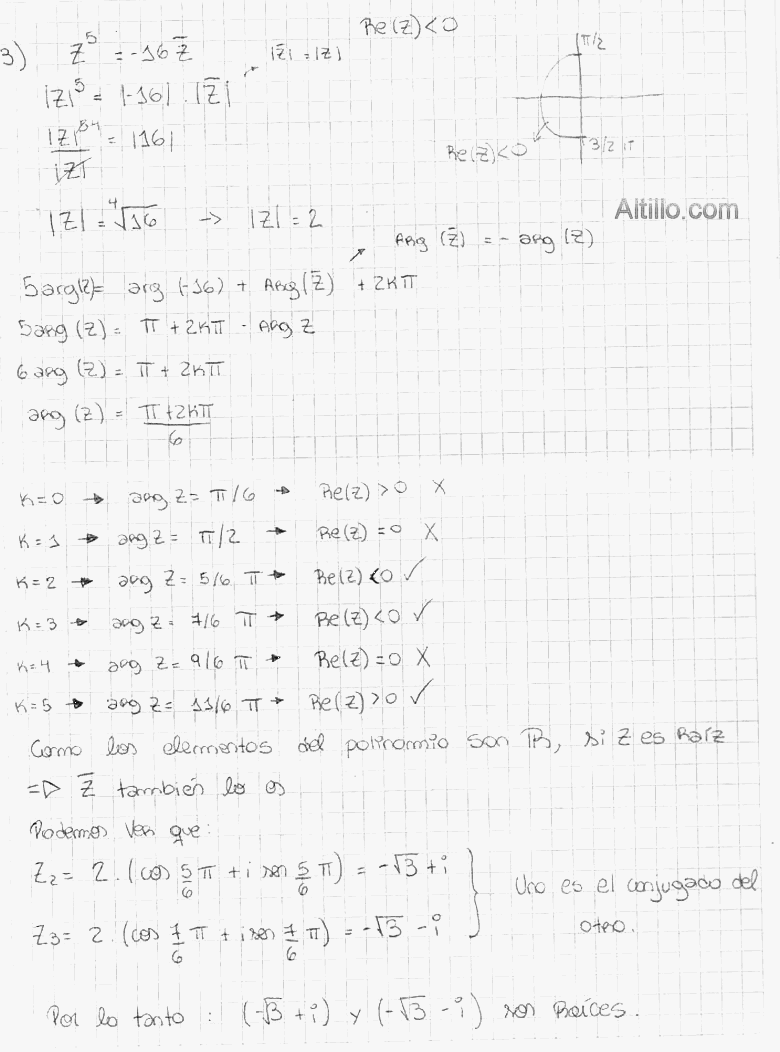 Re(z)<0
3) z^5 = -16 z̄
|z̄| = |z|
|z|^5 = |-16| . |z̄|
|z|^5 4 / |z| = |16|
π/2
3/2 π
Re(z)<0
|z| = ⁴√16 → |z| = 2
Altillo.com
Arg (z̄) = - arg (z)
5arg(z)= arg (-16) + Arg(z̄) + 2kπ
5arg (z) = π + 2kπ - Arg z
6 arg (z) = π + 2kπ
arg (z) = π+2kπ / 6
k=0 → arg z = π/6 → Re(z) >0 X
k=1 → arg z = π/2 → Re(z) =0 X
k=2 → arg z = 5/6 π → Re(z) <0 ✓
k=3 → arg z = 7/6 π → Re(z) <0 ✓
k=4 → arg z = 9/6 π → Re(z) =0 X
k=5 → arg z = 11/6 π → Re(z) >0 ✓
Como los elementos del polinomio son R, si z es Raíz
=> z̄ también lo es
Podemos ver que:
z2 = 2 . (cos 5/6 π + i sen 5/6 π) = -√3 + i
z3 = 2 . (cos 7/6 π + i sen 7/6 π) = -√3 - i
Uno es el conjugado del
otro.
Por lo tanto : (-√3 + i) y (-√3 - i) son Raíces.